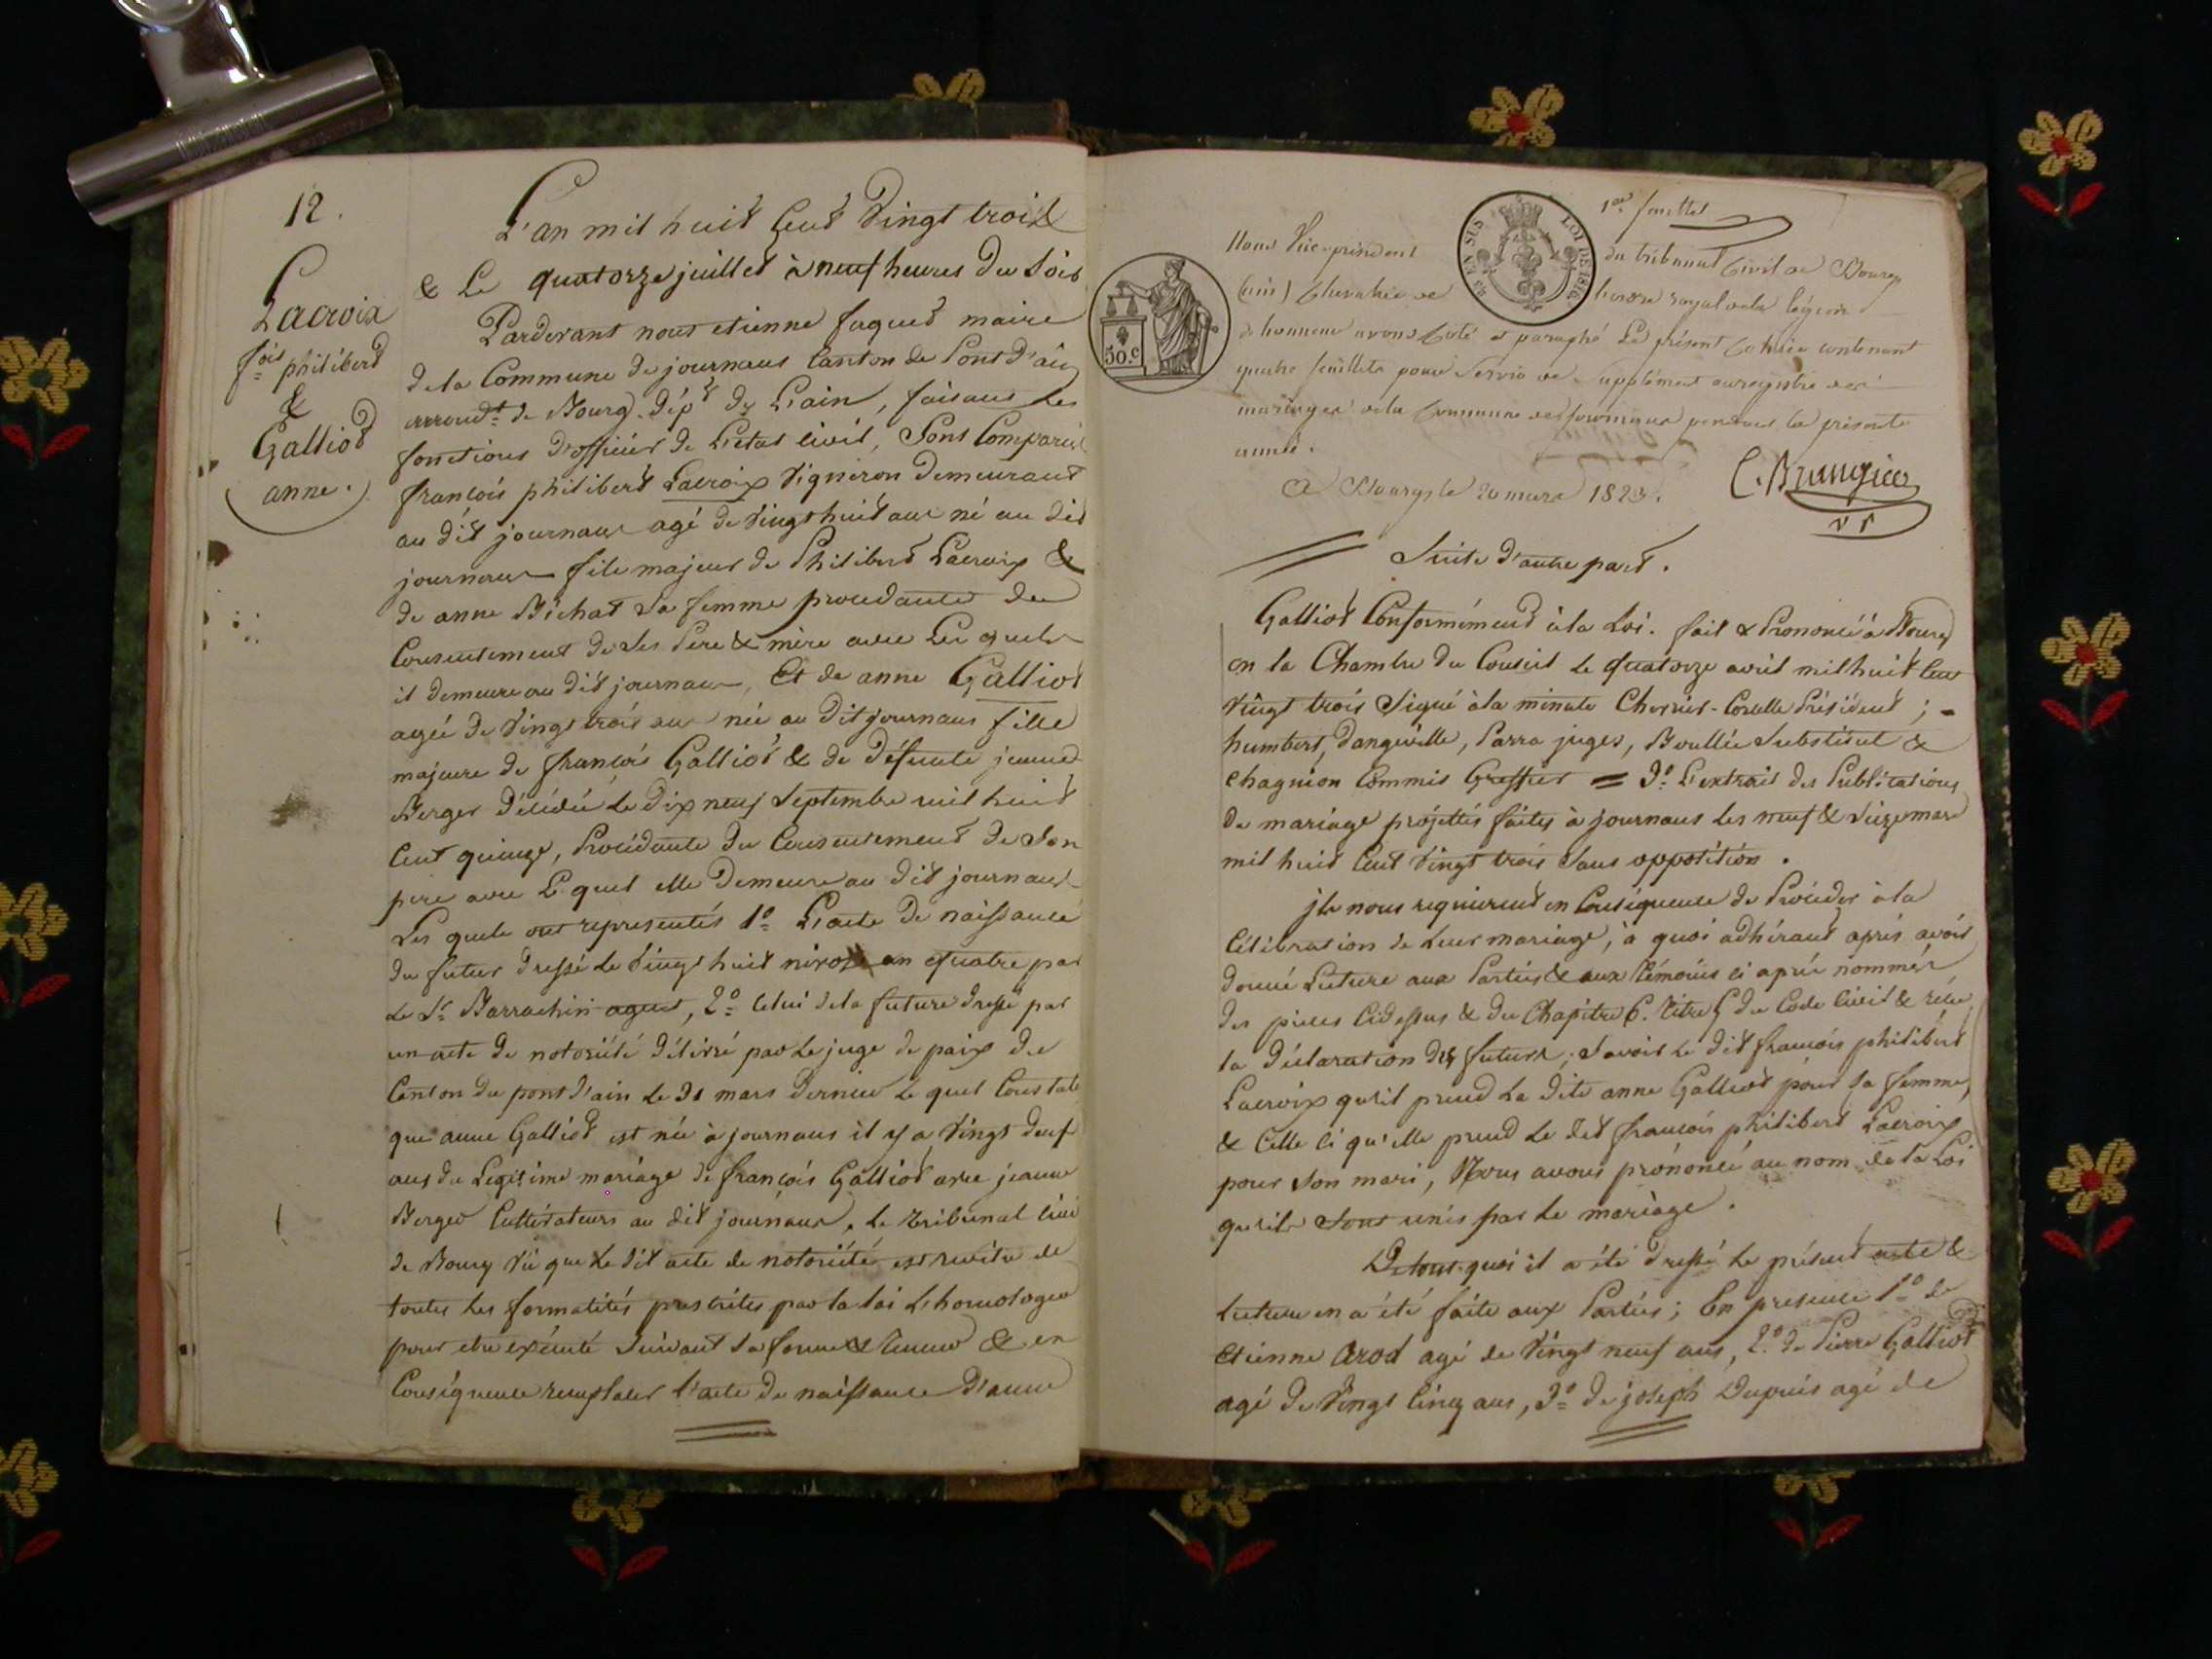 12.
Lacroix
fois philiberd
&
Galliod
anne.
L'an mil huit Cent Vingt trois
& Le quatorze juillet à neuf heures du Soir
Pardevant nous etienne fuqued maire
de la Commune de journans Canton de Pont d'ain
arroudt de Bourg. dépt de L'ain, faisant les
fonctions d'officier de L'état Civil, Sont Comparus
françois philiberd Lacroix Vigneron demeurant
au dit journans agé de Vingt huit ans né au dit
journans fils majeur de Philiberd Lacroix &
de anne Bichat Sa femme procedante du
Consentement de Ses Pere & mère avec Les quels
il demeure au dit journans, Et de anne Galliot
agée de Vingt trois ans née au dit journans fille
majeure de françois Galliod & de Défunte jeanne
Berger décédée Le dix neuf Septembre mil huit
Cent quinze, Procédante du Consentement de Son
pere avec Le quel elle Demeure au dit journans
Les quels ont representés 1o L'acte de naissance
du futur dressé Le Vingt huit nivose an quatre par
Le Sr Barrachin agent, 2o Celui de la future dressé par
un acte de notoriété délivré par Le juge de paix du
Canton du pont d'ain Le 31 mars dernier Le quel Constate
que anne Galliod est née à journans il y a Vingt deux
ans du Legitime mariage de françois Galliod avec jeanne
Berger Cultivateurs au dit journans, Le Tribunal Civil
de Bourg Vû que Le dit acte de notoriété est revêtu de
toutes Les formalités prescrites par la loi L'homologue
pour etre exécuté Suivant Sa forme & teneur & en
Conséquence remplacer l'acte de naissance d'anne
1er feuillet
Nous Vice-président du tribunal Civil de Bourg
(ain) Chevalier de L'ordre royal de la légion
d'honneur avons Coté et paraphé Le présent Cahier contenant
quatre feuillets pour Servir de Supplément au registre des
mariages de la Commune de journans pendant la présente
année.
A Bourg le 20 mars 1823.
EN SUS
LOI DE 1816
50.c
Suite d'autre part.
Galliod Conformément à la Loi. fait & Prononcé à Bourg
en la Chambre du Conseil Le quatorze avril mil huit Cent
Vingt trois Signé à la minute Chevrier-Corcelle Président ;
humbert, dangeville, Parra juges, Boullée Substitut &
Chagnion Commis Greffier = 3o L'extrait des Publications
de mariage projettés faites à journans les neuf & Seize mars
mil huit Cent Vingt trois Sans opposition.
jls nous requierent en Conséquence de Procéder à la
Célébration de Leur mariage, à quoi adhérant après avoir
donné Lecture aux Parties & aux témoins ci après nommés
des pieces Cidessus & du Chapitre 6. titre 5 du Code Civil & réçu
la déclaration des futurs, Savoir Le dit françois philiberd
Lacroix qu'il prend La dite anne Galliod pour Sa femme,
& Celle ci qu'elle prend Le dit françois philiberd Lacroix
pour Son mari, Nous avons prononcé au nom de la Loi
qu'ils Sont unis par Le mariage.
De tout quoi il a été dressé Le présent acte &
Lecture en a été faite aux Parties ; En presence 1o de
etienne Arod agé de Vingt neuf ans, 2o de Pierre Galliod
agé de Vingt Cinq ans, 3o de joseph Dupuis agé de